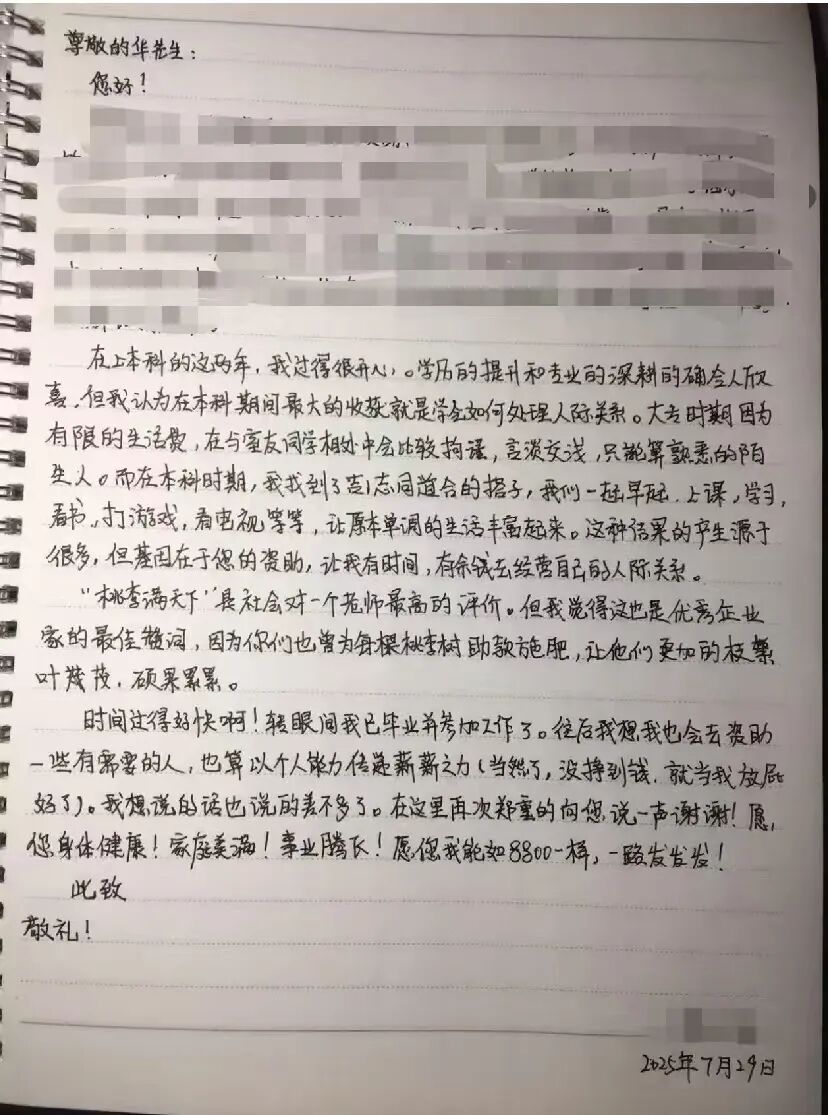 尊敬的华先生：
您好！
在上本科的这两年，我过得很开心。学历的提升和专业的深耕的确令人欣
喜，但我认为在本科期间最大的收获就是学会如何处理人际关系。大专时期因为
有限的生活费，在与室友同学相处中会比较拘谨，言谈交浅，只能算熟悉的陌
生人。而在本科时期，我找到了志同道合的搭子，我们一起早起、上课，学习，
看书、打游戏，看电视等等，让原本单调的生活丰富起来。这种结果的产生源于
很多，但基因在于您的资助，让我有时间，有余钱去经营自己的人际关系。
“桃李满天下”是社会对一个老师最高的评价。但我觉得这也是优秀企业
家的最佳赞词，因为你们也曾为每棵桃李树助款施肥，让他们更加的枝繁
叶茂，硕果累累。
时间过得好快啊！转眼间我已毕业并参加工作了。往后我想我也会去资助
一些有需要的人，也算以个人能力传递薪薪之力（当然了，没挣到钱，就当我放屁
好了）。我想说的话也说的差不多了。在这里再次郑重的向您说一声谢谢！愿，
您身体健康！家庭美满！事业腾飞！愿您我能如8800一样，一路发发发！
此致
敬礼！
2025年7月29日